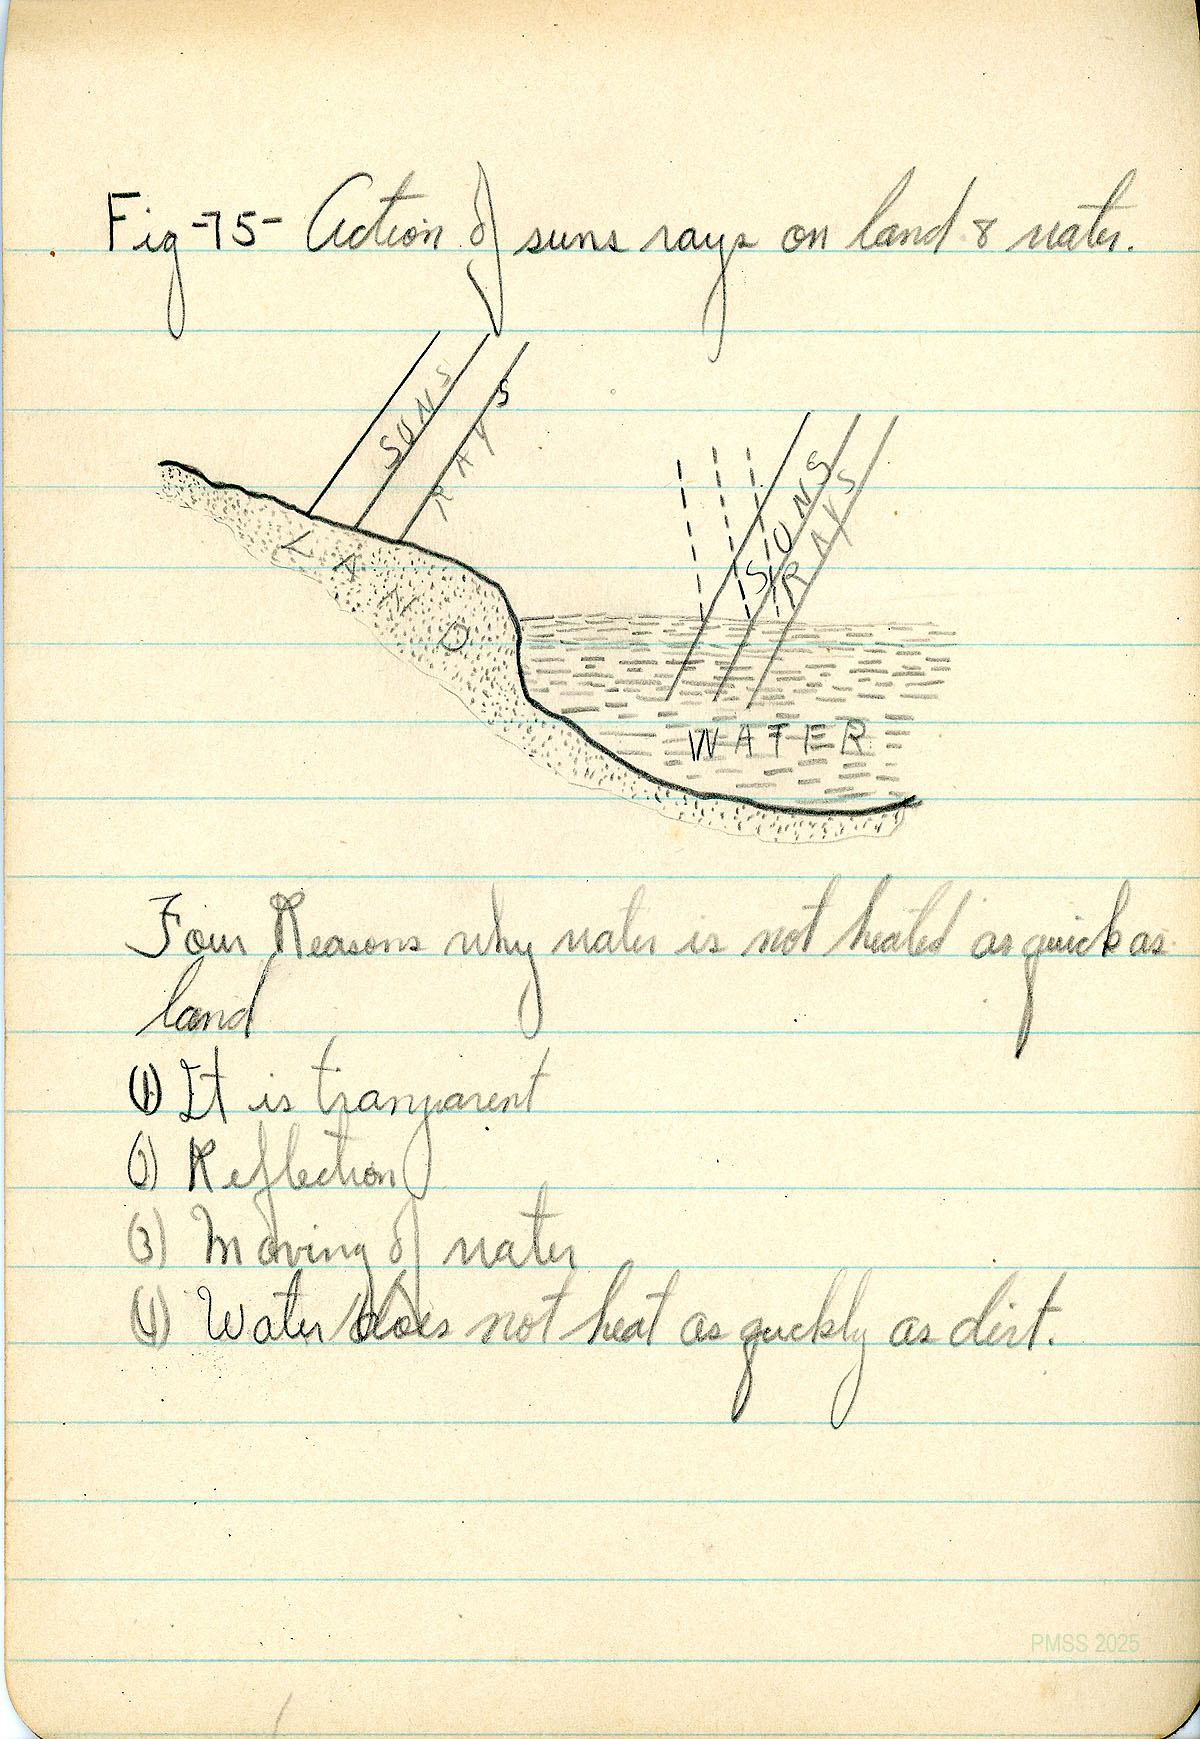 Fig-75- Action of suns rays on land & water.
SUNS
RAYS
SUNS
RAYS
LAND
WATER
Four Reasons why water is not heated as quick as
land
(1) It is tranparent
(2) Reflection
(3) Moving of water
(4) Water does not heat as quickly as dirt.
PMSS 2025